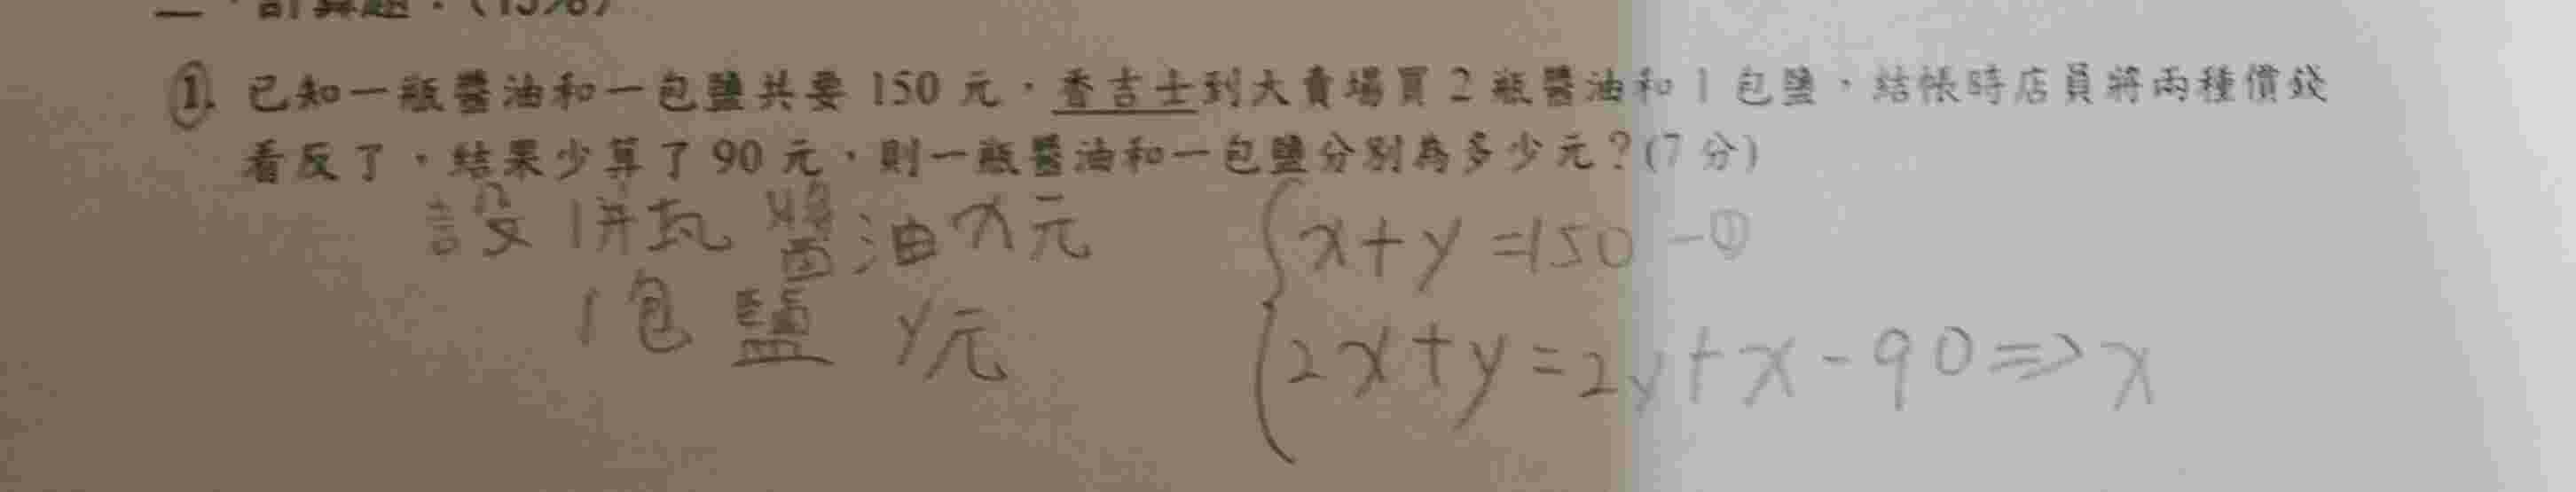 二、計算題：(15%)
①. 已知一瓶醬油和一包鹽共要 150 元，香吉士到大賣場買 2 瓶醬油和 1 包鹽，結帳時店員將兩種價錢
看反了，結果少算了 90 元，則一瓶醬油和一包鹽分別為多少元？(7 分)
設 1瓶醬油 x元
1包鹽 y元
x+y=150 -①
2x+y=2y+x-90⇒x